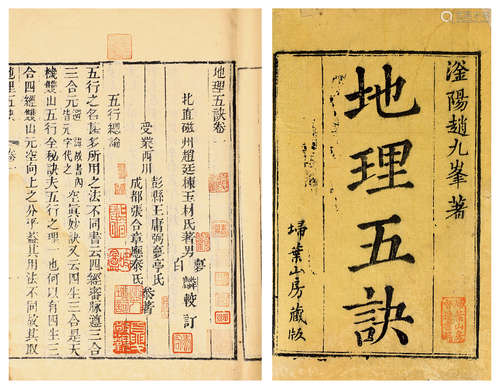 滏陽趙九峯著
地理五訣
埽葉山房藏版
地理五訣卷一
北直磁州趙廷棟玉材氏著男
白麟較訂
受業西川
彭縣王庸弼夢亭氏
成都張合章應泰氏
參著
五行總論
五行之名甚多所用之法不同書云四經審脉遵三合
三合元空真妙訣又云四生三合是天
機雙山五行全秘訣夫五行之理一也何以有四生三
合四經雙山元空向上之分乎葢其用法不同故其取
地理五訣
卷一